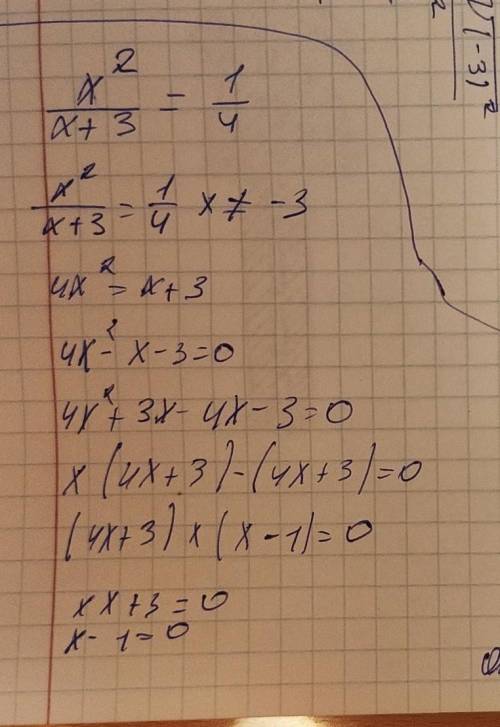 x²/(x+3) = 1/4
x²/(x+3) = 1/4 x ≠ -3
4x² = x+3
4x² - x - 3 = 0
4x² + 3x - 4x - 3 = 0
x(4x+3) - (4x+3) = 0
(4x+3) x (x-1) = 0
xx+3 = 0
x - 1 = 0
(-3)²